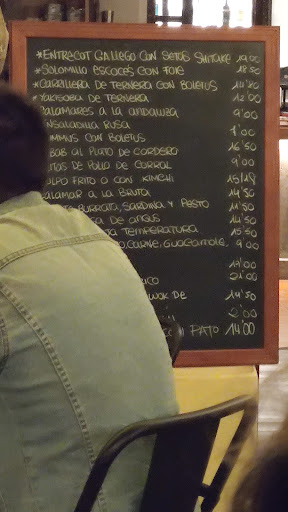 *ENTRECOT GALLEGO CON SETAS SHITAKE 19'00
*SOLOMILLO ESCOCÉS CON FOIE 18'50
*CARRILLERA DE TERNERA CON BOLETUS 14'50
*YAKISOBA DE TERNERA 12'00
CALAMARES A LA ANDALUZA 9'00
ENSALADILLA RUSA
CON BOLETUS 7'00
AL PLATO DE CORDERO 16'50
DE POLLO DE CORRAL 9'00
FRITO O CON KIMCHI 15/18
CALAMAR A LA BRUTA 14'50
BURRATA, SARDINA Y PESTO 11'50
DE ANGUS 14'50
TEMPERATURA 15'50
CARNE, GUACAMOLE 9'00
17'00
21'00
WOK DE 14'50
2'00
PATO 14'00